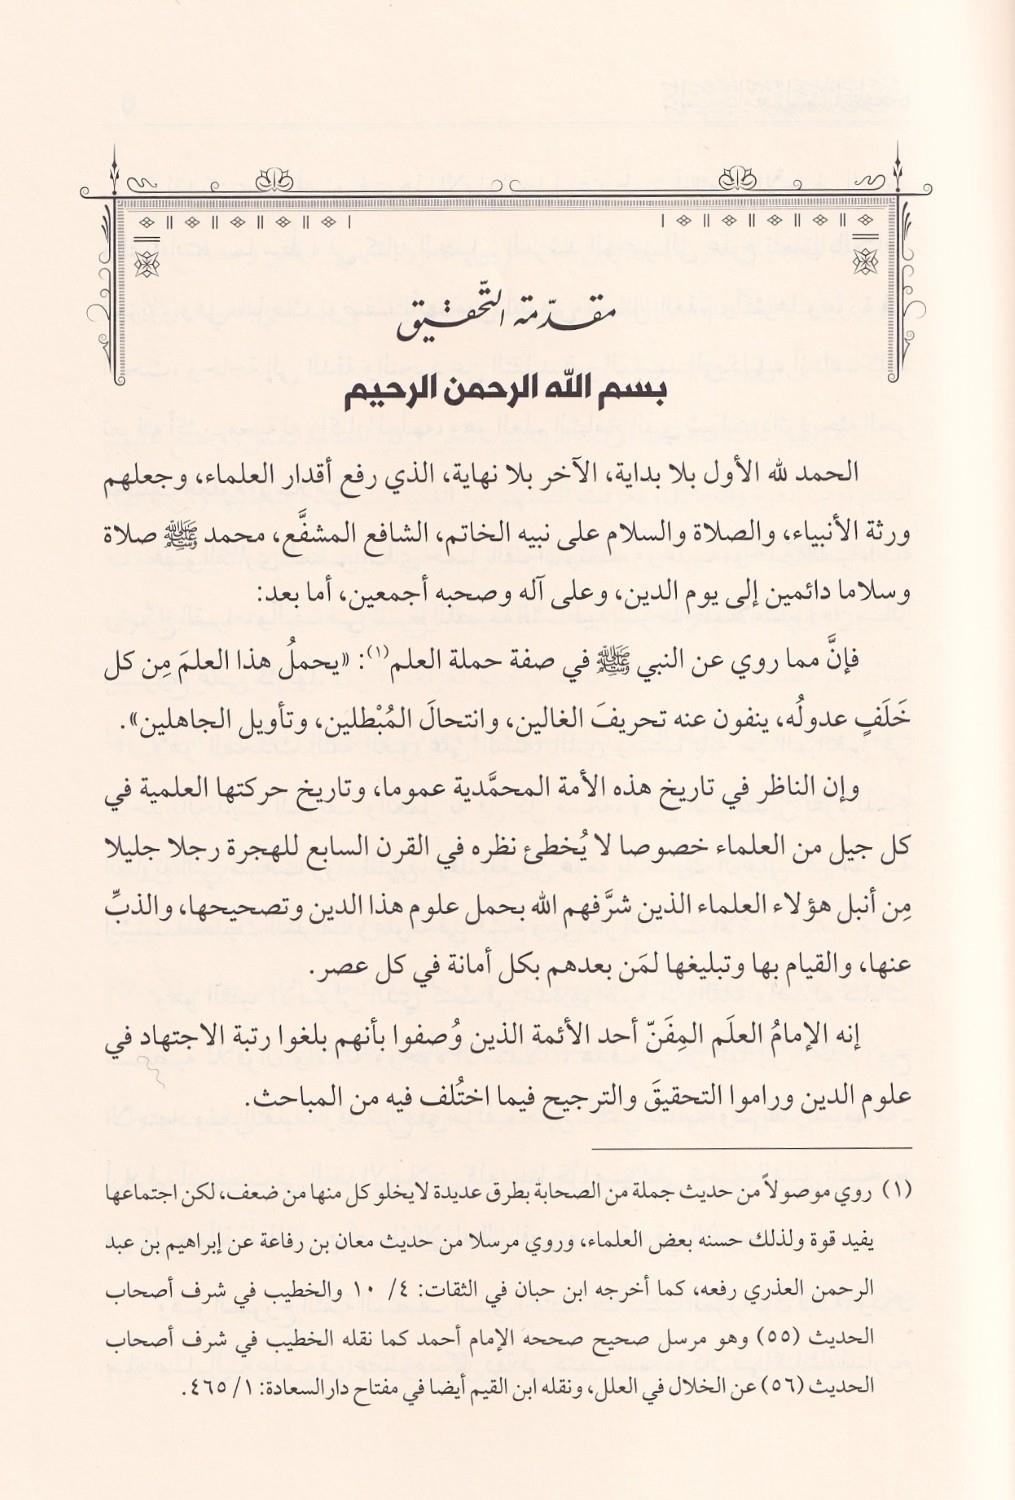 مقدّمة التّحقيق
بسم الله الرحمن الرحيم
الحمد لله الأول بلا بداية، الآخر بلا نهاية، الذي رفع أقدار العلماء، وجعلهم
ورثة الأنبياء، والصلاة والسلام على نبيه الخاتم، الشافع المشفَّع، محمد ﷺ صلاة
وسلاما دائمين إلى يوم الدين، وعلى آله وصحبه أجمعين، أما بعد:
فإنَّ مما روي عن النبي ﷺ في صفة حملة العلم(١): «يحملُ هذا العلمَ مِن كل
خَلَفٍ عدولُه، ينفون عنه تحريفَ الغالين، وانتحالَ المُبْطلين، وتأويل الجاهلين».
وإن الناظر في تاريخ هذه الأمة المحمَّدية عموما، وتاريخ حركتها العلمية في
كل جيل من العلماء خصوصا لا يُخطئ نظره في القرن السابع للهجرة رجلا جليلا
مِن أنبل هؤلاء العلماء الذين شرَّفهم الله بحمل علوم هذا الدين وتصحيحها، والذبِّ
عنها، والقيام بها وتبليغها لمَن بعدهم بكل أمانة في كل عصر.
إنه الإمامُ العلَم المِفَنّ أحد الأئمة الذين وُصفوا بأنهم بلغوا رتبة الاجتهاد في
علوم الدين وراموا التحقيقَ والترجيح فيما اختُلف فيه من المباحث.
(١) روي موصولاً من حديث جملة من الصحابة بطرق عديدة لا يخلو كل منها من ضعف، لكن اجتماعها
يفيد قوة ولذلك حسنه بعض العلماء، وروي مرسلا من حديث معان بن رفاعة عن إبراهيم بن عبد
الرحمن العذري رفعه، كما أخرجه ابن حبان في الثقات: ٤/ ١٠ والخطيب في شرف أصحاب
الحديث (٥٥) وهو مرسل صحيح صححه الإمام أحمد كما نقله الخطيب في شرف أصحاب
الحديث (٥٦) عن الخلال في العلل، ونقله ابن القيم أيضا في مفتاح دار السعادة: ١/ ٤٦٥.